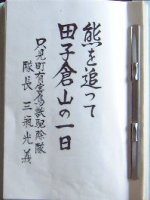 熊を追って
田子倉山の一日
只見町有害鳥獣駆除隊
隊長 三瓶光義